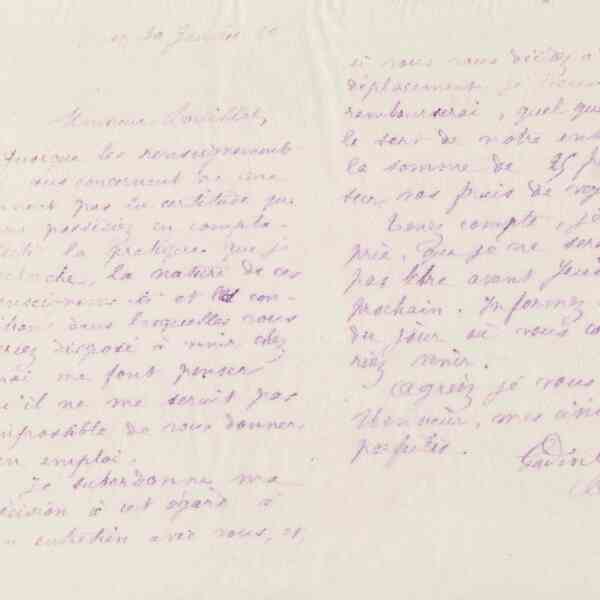 30 Janvier
Monsieur
Quoique les renseignements
vous concernant ne me
donnent pas la certitude que
vous possédiez en compta-
bilité la pratique que je
recherche, la nature de ces
renseignements et les con-
ditions dans lesquelles vous
seriez disposé à venir chez
moi me font penser
qu'il ne me serait pas
impossible de vous donner
un emploi.
Je subordonne ma
décision à cet égard à
un entretien avec vous, et,
si vous vous décidez à
déplacement je
rembourserai, quel que
le sens de notre ent
la somme de 25 f
sur vos frais de voy
Tenez compte, je
prie, que je ne ser
pas libre avant Jeudi
prochain. Informez
du jour où vous co
riez venir.
Agréez je vous
Monsieur, mes
parfaites.